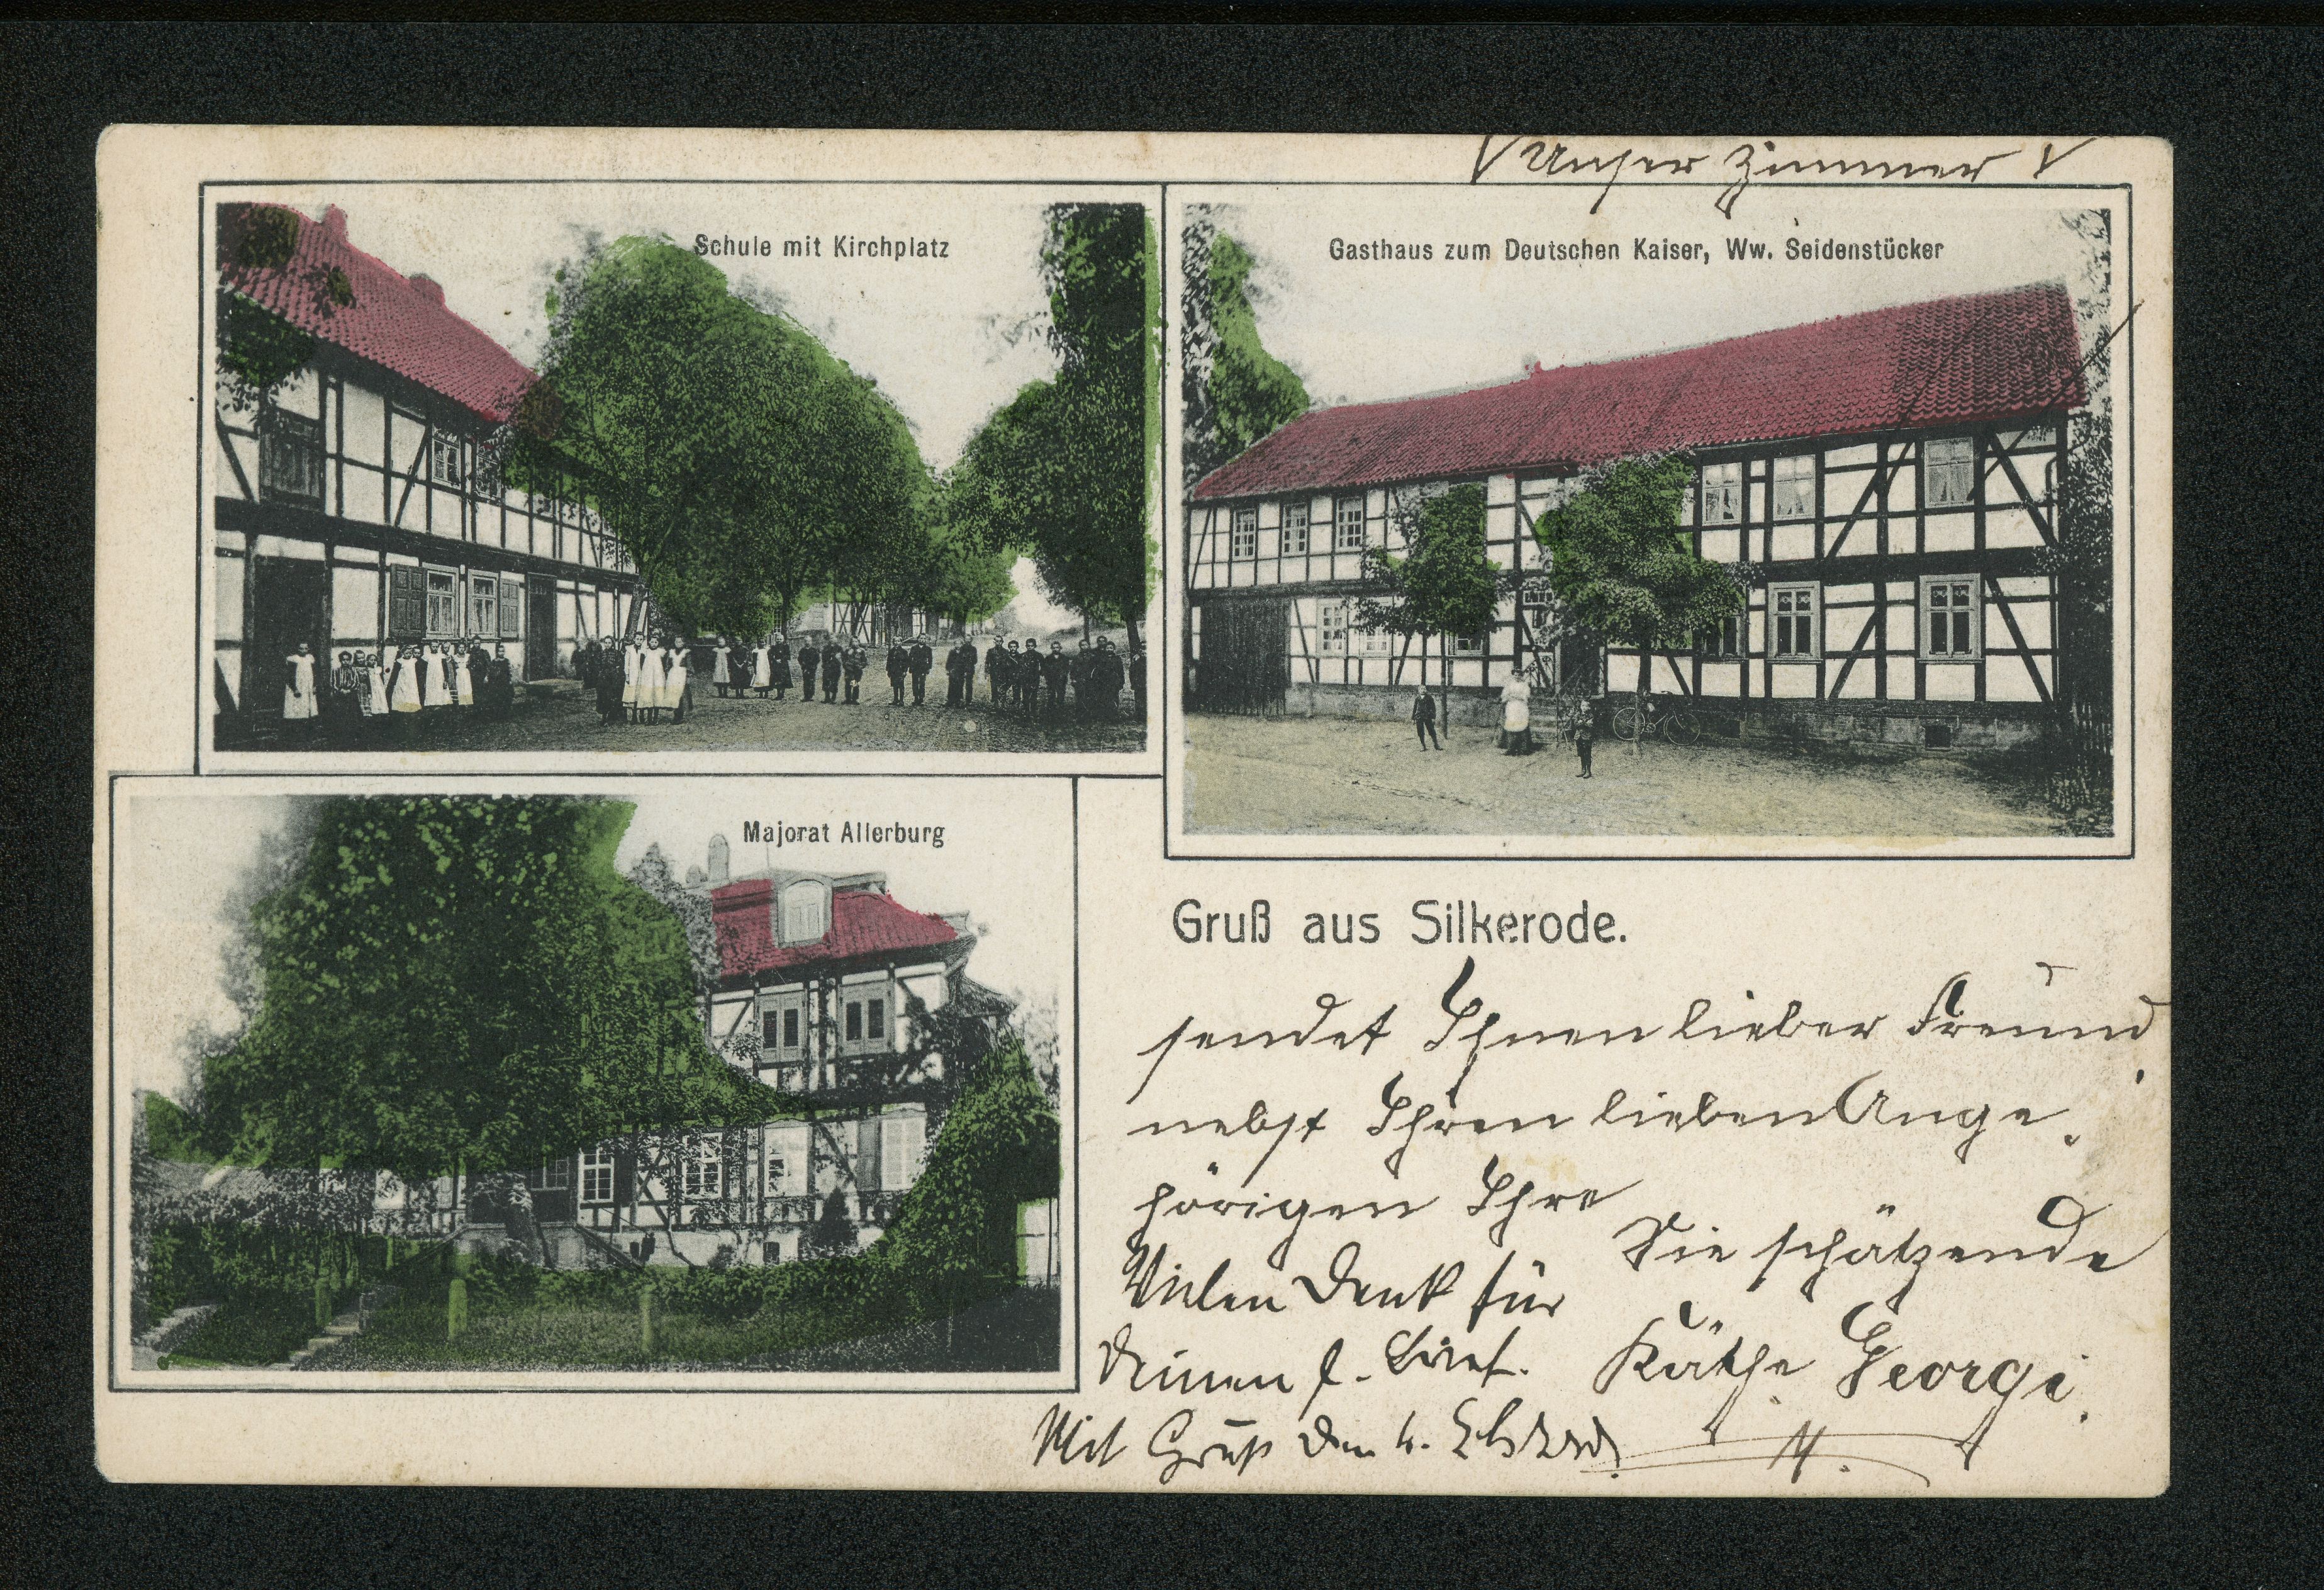 Unser Zimmer
Schule mit Kirchplatz
Gasthaus zum Deutschen Kaiser, Ww. Seidenstücker
Majorat Allerburg
Gruß aus Silkerode.
sendet Ihnen lieber Freund
nebst Ihren lieben Ange-
hörigen Ihre
Sie schätzende
Käthe Georgi.
Vielen Dank für
Deinen l. Brief.
Mit Gruß